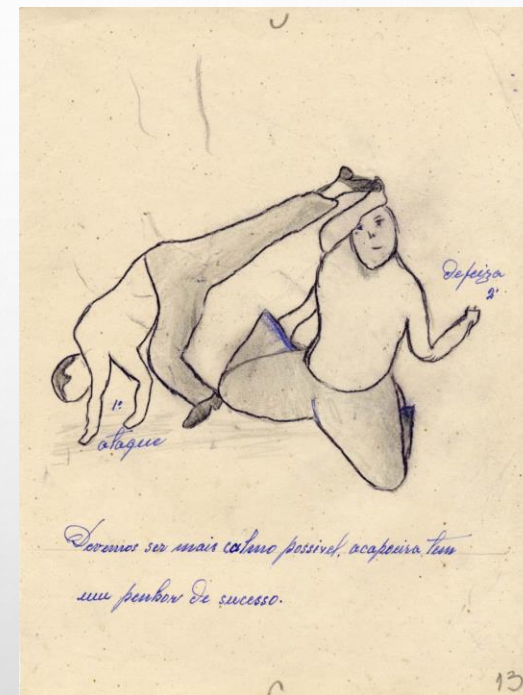 defeiza
2º
1º
ataque
Devemos ser mais calmo possivel, acapoeira tem
um penhor de sucesso.
13